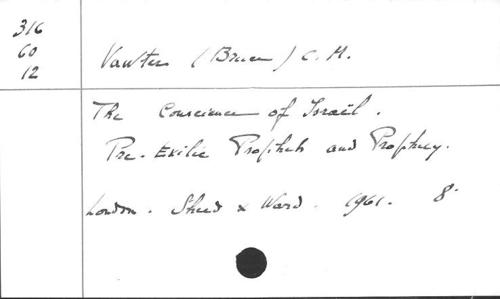 316
60
12
Vawter (Bruce) C. M.
The Conscience of Israël.
Pre-Exilic Prophets and Prophecy.
London. Sheed & Ward. 1961. 8°